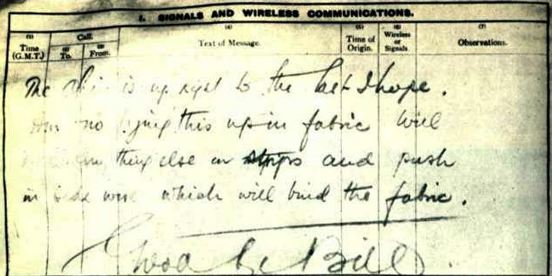 I. SIGNALS AND WIRELESS COMMUNICATIONS.
(1) Time (G.M.T.) Call. (2) To. (3) From. (4) Text of Message. (5) Time of Origin. (6) Wireless or Signals (7) Observations.
The is up right to the last I hope.
no tying this up in fabric will
thing else in strips and push
in wire which will bind the fabric.
Bill.